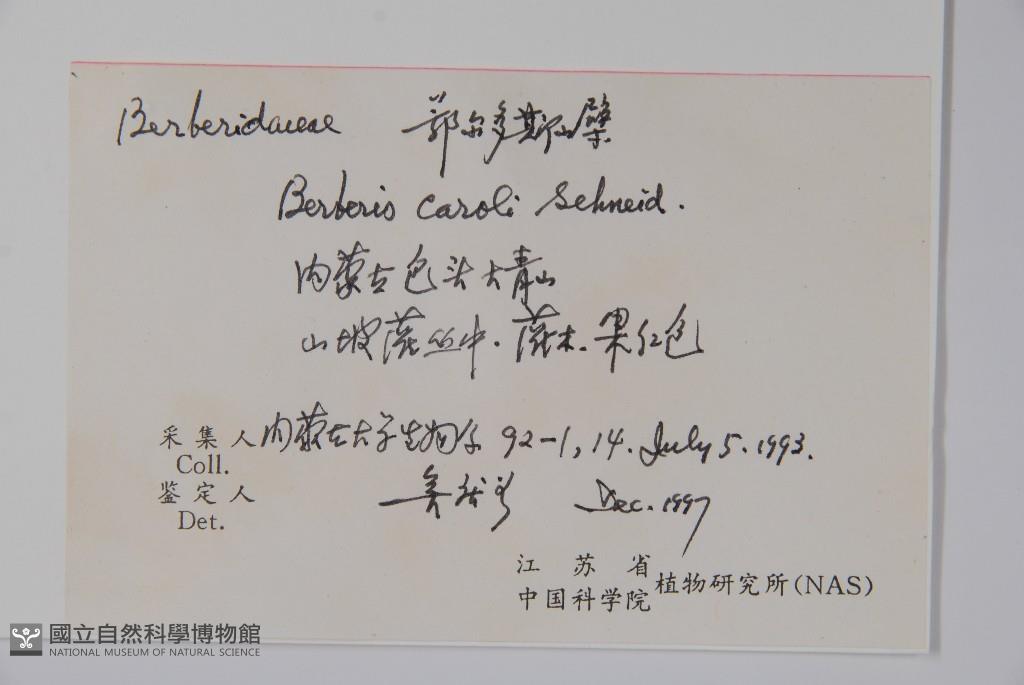 Berberidaceae 鄂尔多斯山檗
Berberis caroli Schneid.
内蒙古包头大青山
山坡灌丛中. 灌木. 果红色
采集人 内蒙古大学生物系 92-1, 14. July 5. 1993.
Coll.
鉴定人 Dec. 1997
Det.
江苏省
中国科学院 植物研究所(NAS)
國立自然科學博物館
NATIONAL MUSEUM OF NATURAL SCIENCE